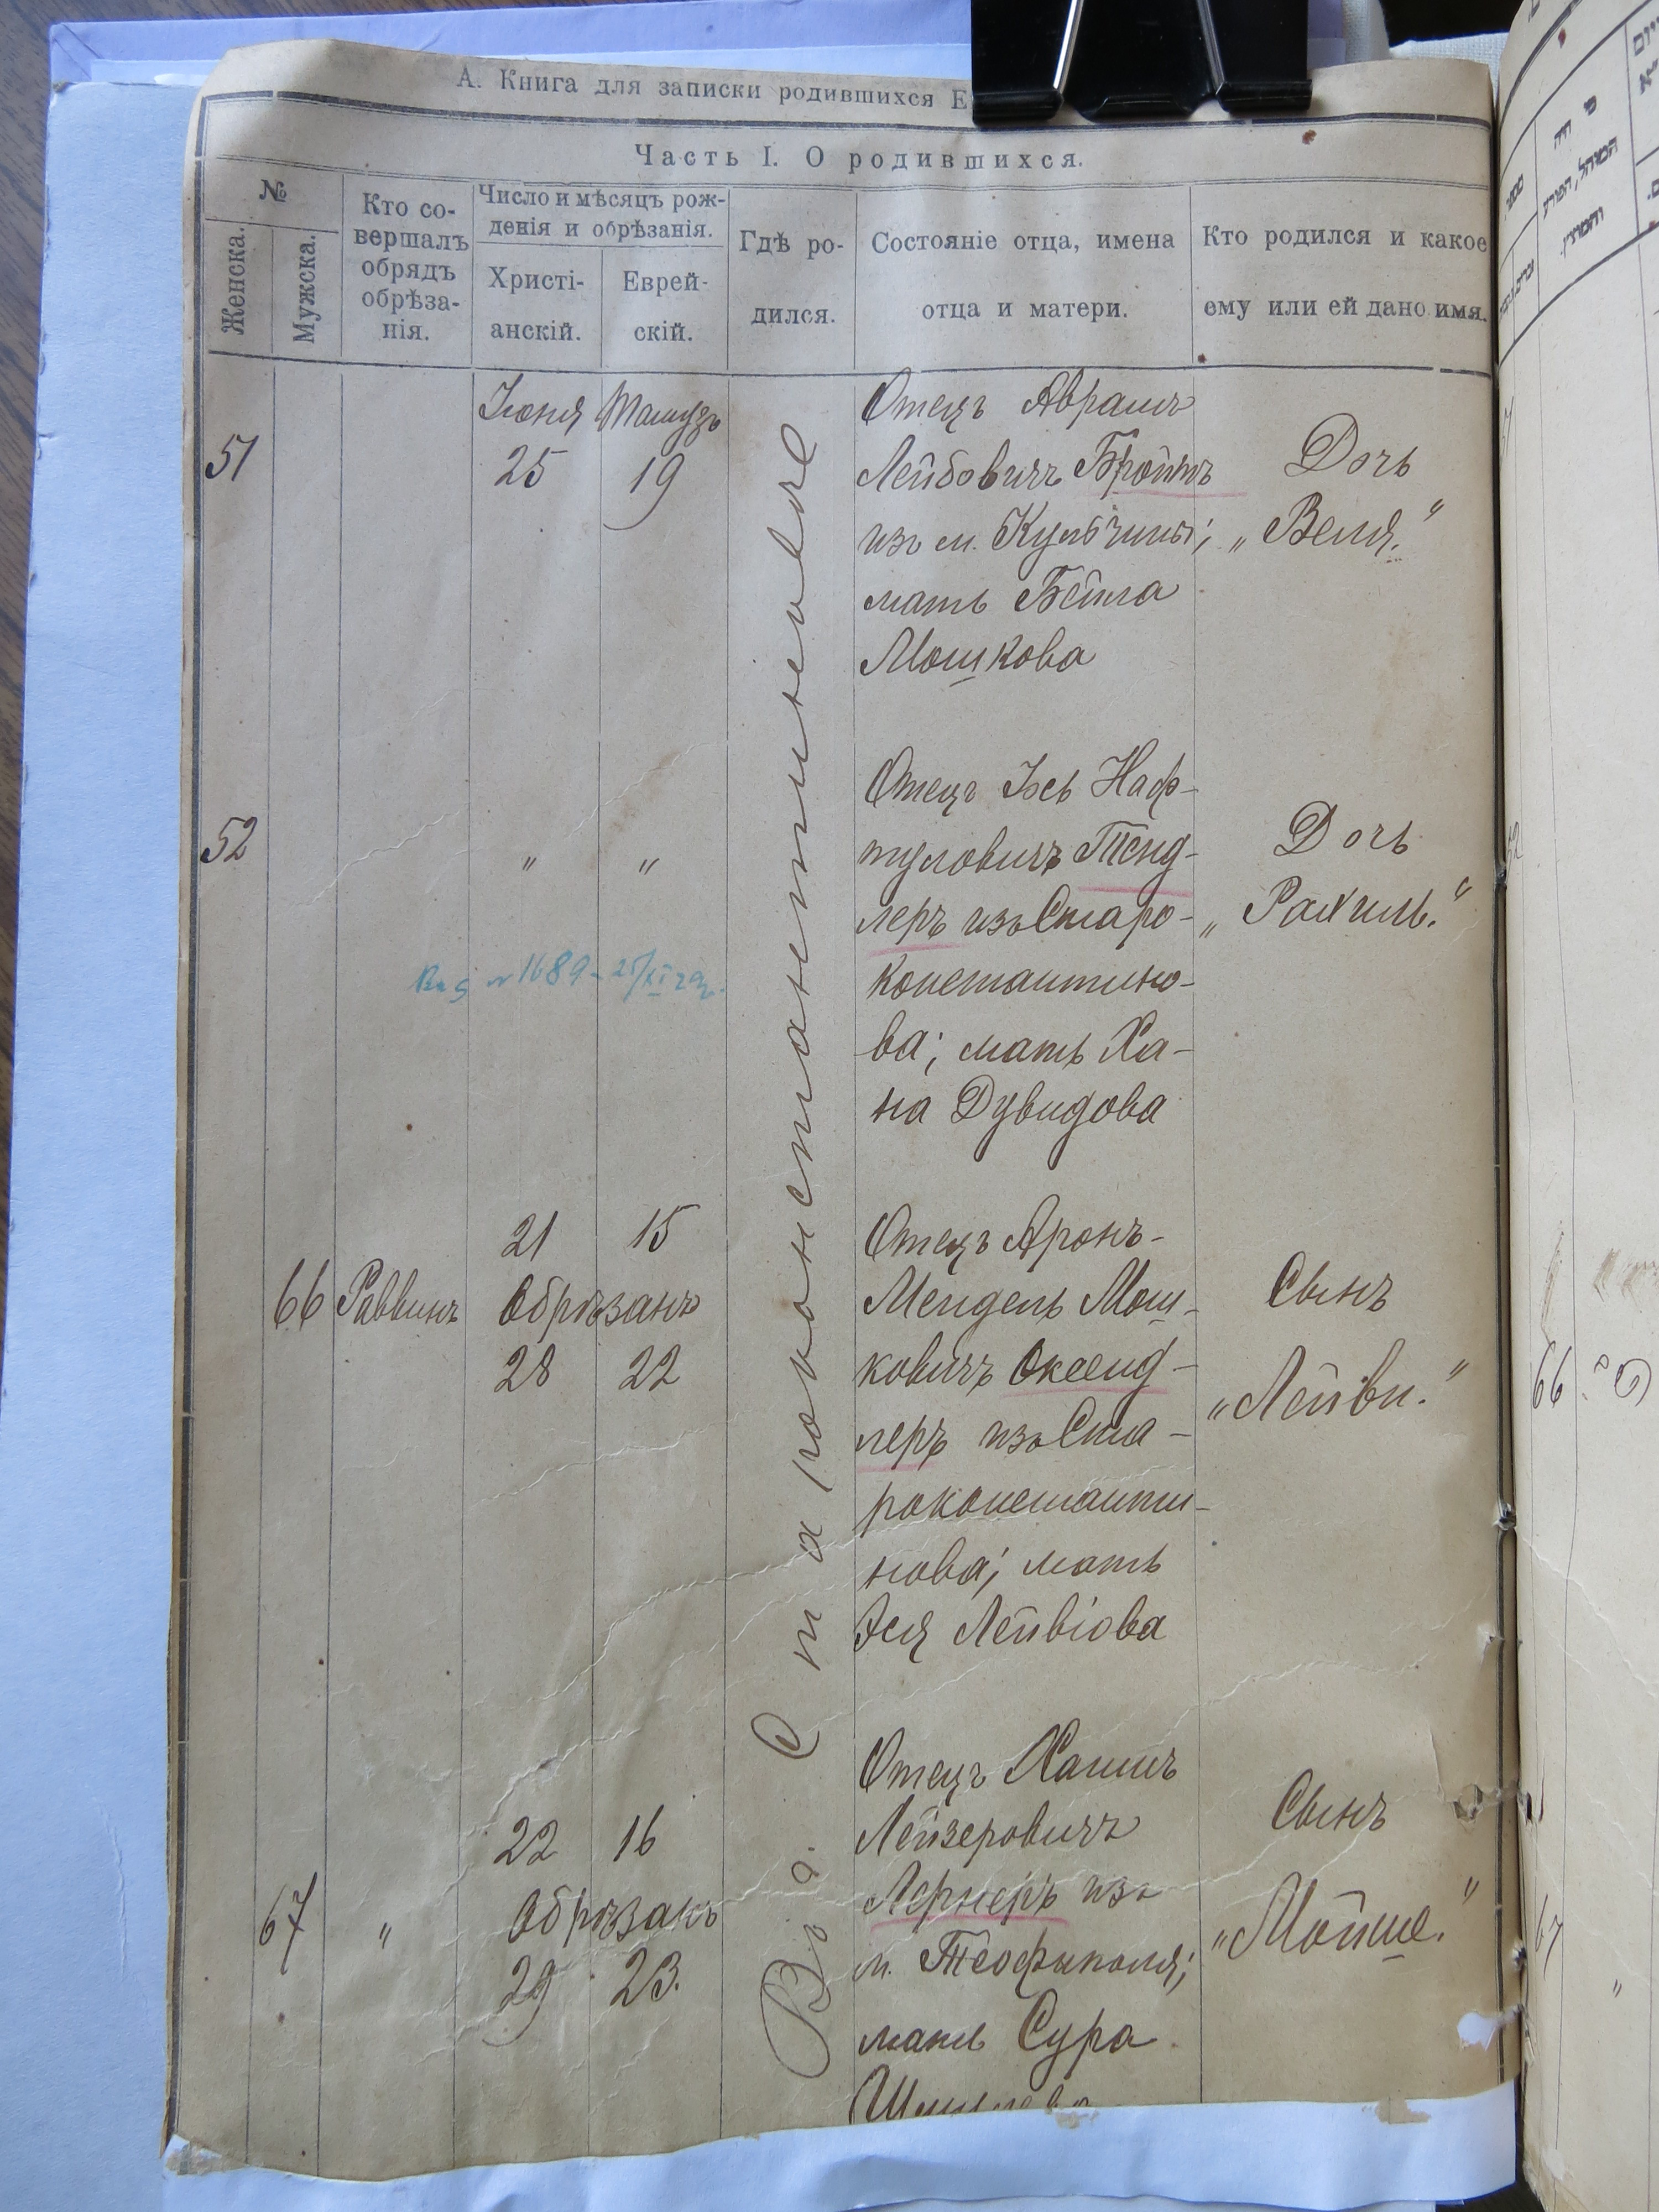 А. Книга для записки родившихся Е
Часть I. О родившихся.
№
Женска.
Мужска.
Кто со-
вершалъ
обрядъ
обрѣза-
нія.
Число и мѣсяцъ рож-
денія и обрѣзанія.
Христі-
анскій.
Еврей-
скій.
Гдѣ ро-
дился.
Состояніе отца, имена
отца и матери.
Кто родился и какое
ему или ей дано имя.
Іюня Тамузъ
51 25 19
Отецъ Аврамъ
Лейбовичъ Бройтъ
изъ м. Кульчинъ;
мать Бейла
Мошкова
Дочь
„Веля."
52 " "
Отецъ Іось Наф-
туловичъ Тенд-
леръ изъ Старо-
константино-
ва; мать Ха-
на Дувидова
Дочь
„Рахиль."
1689 - 25/XI
66 Раввинъ
21 15
Обрѣзанъ
28 22
Отецъ Аронъ-
Мендель Мош-
ковичъ Оксенд-
леръ изъ Ста-
роконстанти-
нова; мать
Эся Лейвіова
Сынъ
„Лейви."
67 "
22 16
Обрѣзанъ
29 23.
Отецъ Хаимъ
Лейзеровичъ
Лернеръ изъ
м. Теофиполя;
мать Сура
Сынъ
„Мойше."
Въ г. Староконстантиновѣ
66
67